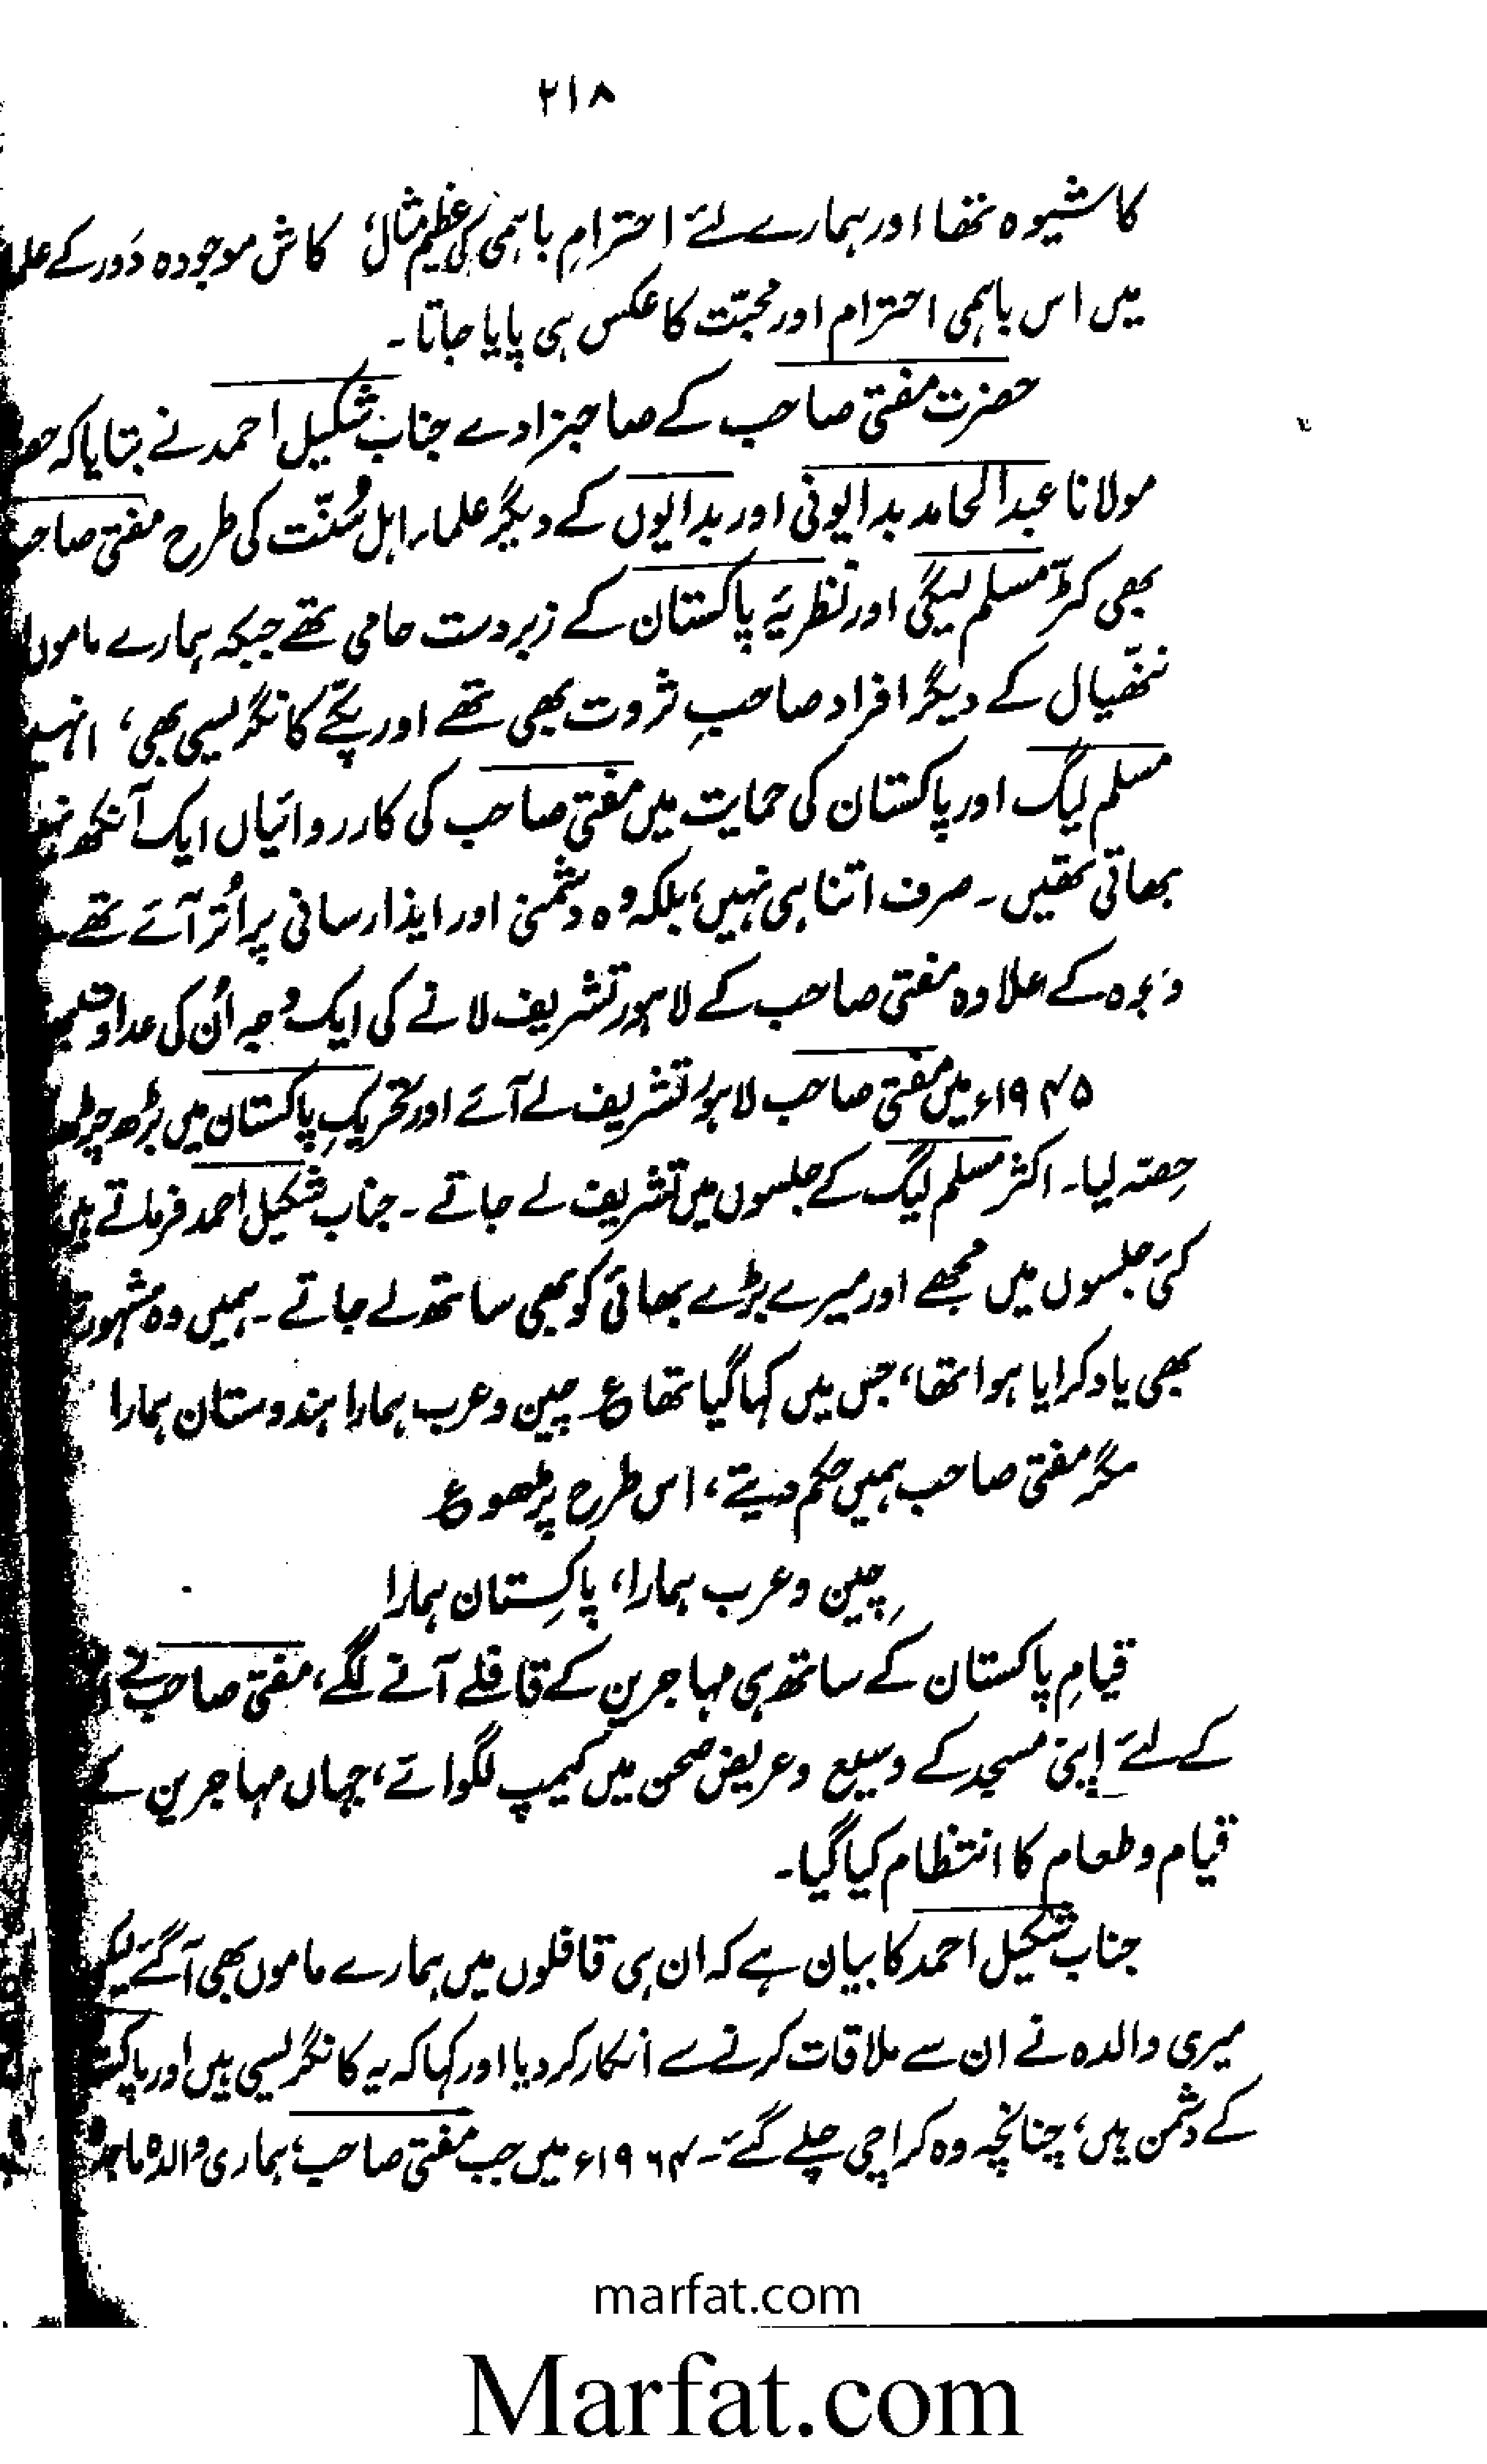 ۲۱۸
کا شیوہ تھا اور ہمارے لئے احترامِ باہمی کی عظیم مثال، کاش موجودہ دَور کے علما
میں اس باہمی احترام اور محبّت کا عکس ہی پایا جاتا۔
حضرت مفتی صاحب کے صاحبزادے جناب شکیل احمد نے بتایا کہ
مولانا عبدالحامد بدایونی اور بدایوں کے دیگر علماء اہل سُنّت کی طرح مفتی صاحب
بھی کٹر مسلم لیگی اور نظریۂ پاکستان کے زبردست حامی تھے جبکہ ہمارے ماموں
ننھیال کے دیگر افراد صاحبِ ثروت بھی تھے اور پکّے کانگریسی بھی، انہیں
مسلم لیگ اور پاکستان کی حمایت میں مفتی صاحب کی کارروائیاں ایک آنکھ نہ
بھاتی تھیں۔ صرف اتنا ہی نہیں، بلکہ وہ دشمنی اور ایذا رسانی پر اُتر آئے تھے۔
وغیرہ کے علاوہ مفتی صاحب کے لاہور تشریف لانے کی ایک وجہ اُن کی عداوت
۱۹۴۵ء میں مفتی صاحب لاہور تشریف لے آئے اور تحریکِ پاکستان میں بڑھ چڑھ
حِصّہ لیا۔ اکثر مسلم لیگ کے جلسوں میں تشریف لے جاتے۔ جناب شکیل احمد فرماتے ہیں
کئی جلسوں میں مجھے اور میرے بڑے بھائی کو بھی ساتھ لے جاتے۔ ہمیں وہ مشہور
بھی یاد کرایا ہوا تھا، جس میں کہا گیا تھا ع چین و عرب ہمارا ہندوستان ہمارا
مگر مفتی صاحب ہمیں حکم دیتے، اس طرح پڑھو ع
چین و عرب ہمارا، پاکِستان ہمارا
قیامِ پاکستان کے ساتھ ہی مہاجرین کے قافلے آنے لگے، مفتی صاحب نے
کے لئے اپنی مسجد کے وسیع و عریض صحن میں کیمپ لگوائے، جہاں مہاجرین کے
قیام و طعام کا انتظام کیا گیا۔
جناب شکیل احمد کا بیان ہے کہ ان ہی قافلوں میں ہمارے ماموں بھی آگئے
میری والدہ نے ان سے ملاقات کرنے سے انکار کر دیا اور کہا کہ یہ کانگریسی ہیں اور
کے دشمن ہیں، چنانچہ وہ کراچی چلے گئے۔ ۱۹۶۴ء میں جب مفتی صاحب، ہماری والدہ
marfat.com
Marfat.com